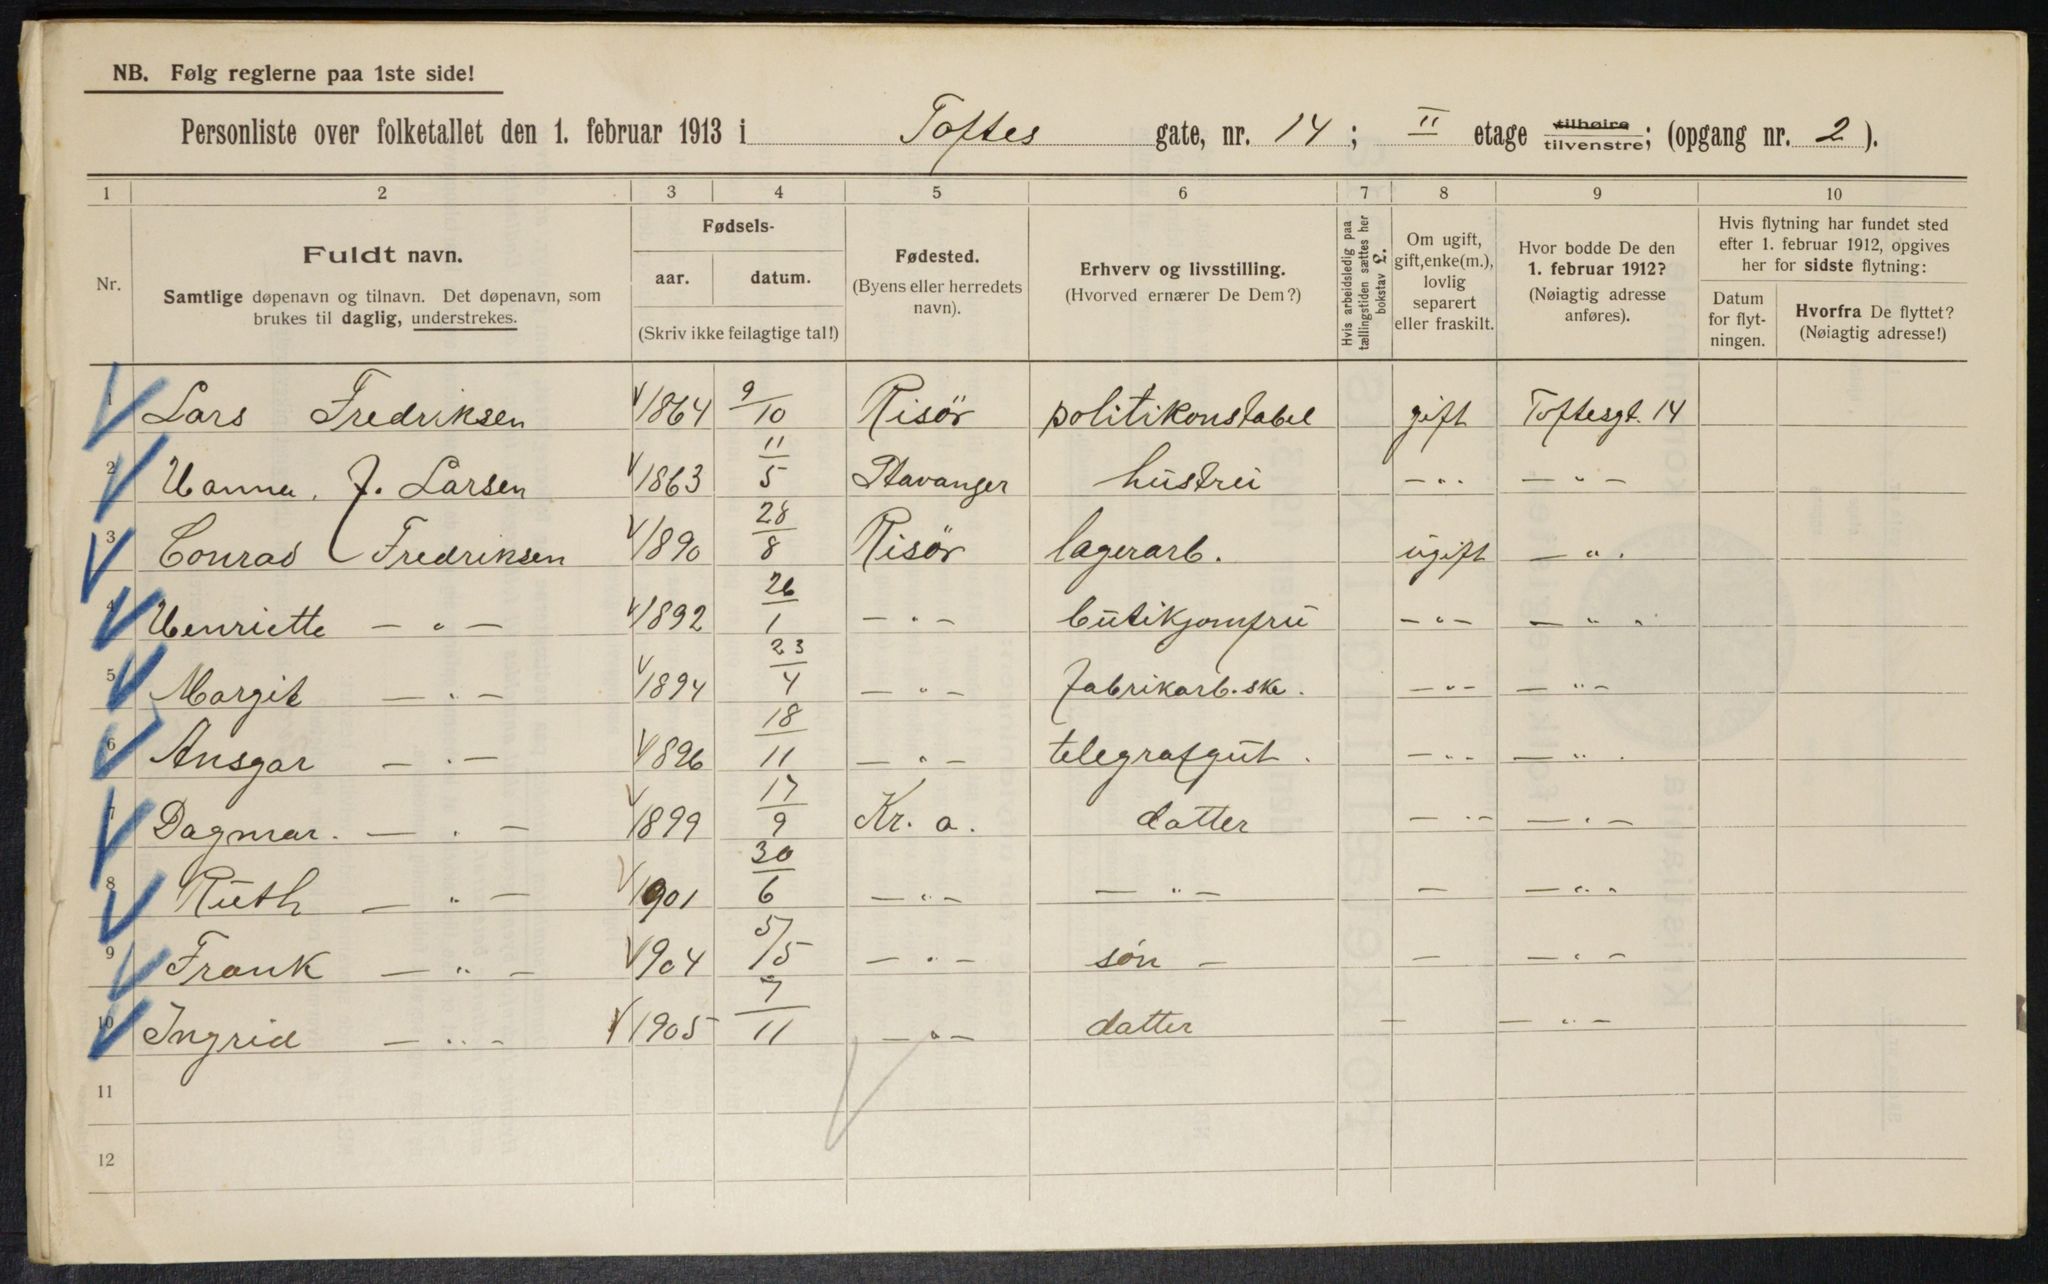 NB. Følg reglerne paa 1ste side!
Personliste over folketallet den 1. februar 1913 i Toftes gate, nr. 14; II etage tilhøire tilvenstre; (opgang nr. 2).
1 2 3 4 5 6 7 8 9 10
Nr.
Fuldt navn.
Samtlige døpenavn og tilnavn. Det døpenavn, som
brukes til daglig, understrekes.
Fødsels-
aar. datum.
(Skriv ikke feilagtige tal!)
Fødested.
(Byens eller herredets
navn).
Erhverv og livsstilling.
(Hvorved ernærer De Dem?)
Hvis arbeidsledig paa
tællingstiden sættes her
bokstav L.
Om ugift,
gift, enke(m.),
lovlig
separert
eller fraskilt.
Hvor bodde De den
1. februar 1912?
(Nøiagtig adresse
anføres).
Hvis flytning har fundet sted
efter 1. februar 1912, opgives
her for sidste flytning:
Datum
for flyt-
ningen.
Hvorfra De flyttet?
(Nøiagtig adresse!)
1 Lars Fredriksen 1864 9/10 Risör politikonstabel gift Toftesgt. 14
2 Hanna. J. Larsen 1863 11/5 Stavanger hustru — " — — " —
3 Conrad Fredriksen 1890 28/8 Risör lagerarb. ugift — " .
4 Henriette — " — 1892 26/1 — " — butikjomfru — " — — " "
5 Margit — " — 1894 23/4 — " — fabrikarb.ske. — " — — " —
6 Ansgar — " — 1896 18/11 — " — telegrafgut. — " — — " .
7 Dagmar. — " — 1899 17/9 Kr. a. datter — " — — " —
8 Ruth — " — 1901 30/6 — " — — " — — — " "
9 Frank — " — 1904 5/5 — " — søn — — — " —
10 Ingrid — " — 1905 7/11 — " — datter — — " —
11
12